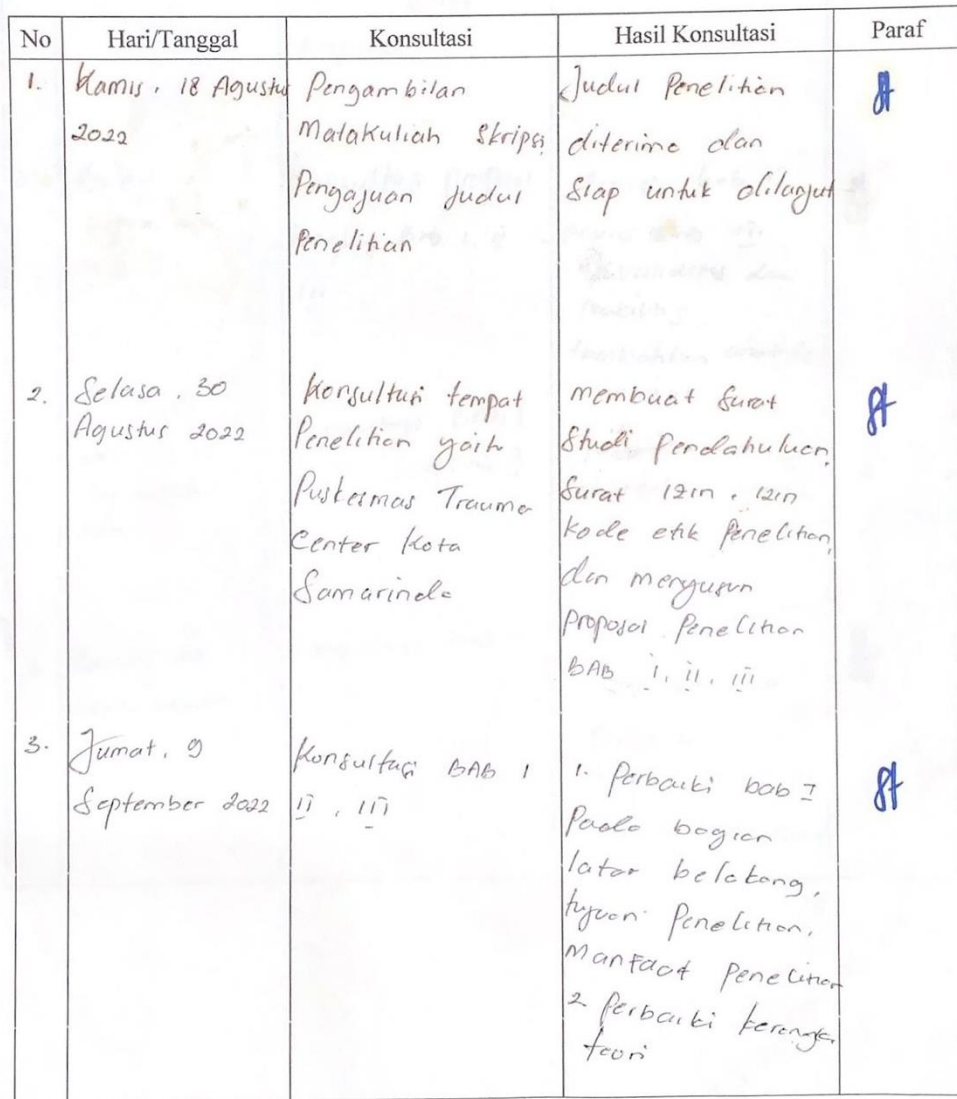 No Hari/Tanggal Konsultasi Hasil Konsultasi Paraf
1. Kamis, 18 Agustus
2022
Pengambilan
Matakuliah Skripsi
Pengajuan Judul
Penelitian
Judul Penelitian
diterima dan
Siap untuk dilanjut
2. Selasa, 30
Agustus 2022
Konsultasi tempat
Penelitian yaitu
Puskesmas Trauma
Center Kota
Samarinda
membuat Surat
Studi Pendahuluan,
Surat izin, izin
kode etik Penelitian,
dan menyusun
Proposal Penelitian
BAB I, II, III
3. Jumat, 9
September 2022
Konsultasi BAB I
II, III
1. Perbaiki bab I
Pada bagian
latar belakang,
tujuan Penelitian,
Manfaat Penelitian
2 Perbaiki kerangka
teori